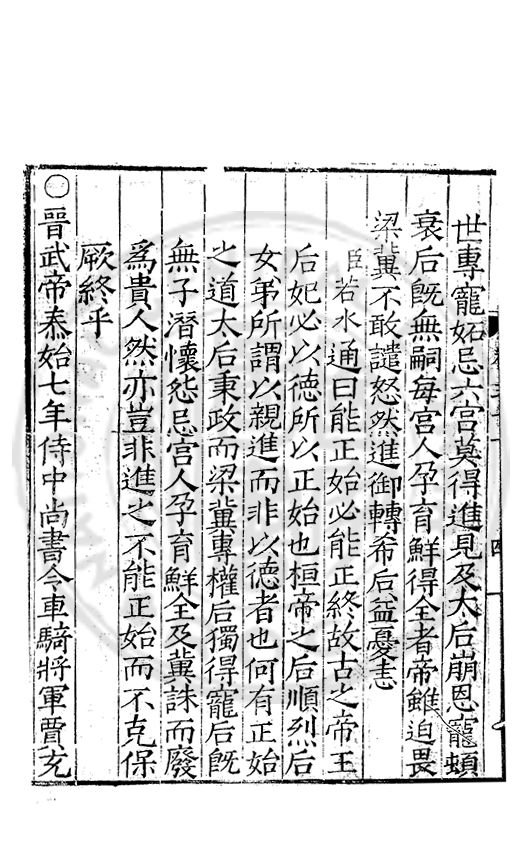 世專寵妬忌六宮莫得進見及太后崩恩寵頓
衰后既無嗣每宮人孕育鮮得全者帝雖迫畏
梁冀不敢譴怒然進御轉希后益憂恚
臣若水通曰能正始必能正終故古之帝王
后妃必以德所以正始也桓帝之后順烈后
女弟所謂以親進而非以德者也何有正始
之道太后秉政而梁冀專權后獨得寵后既
無子潛懷怨忌宮人孕育鮮全及冀誅而廢
為貴人然亦豈非進之不能正始而不克保
厥終乎
〇晉武帝泰始七年侍中尚書令車騎將軍賈充